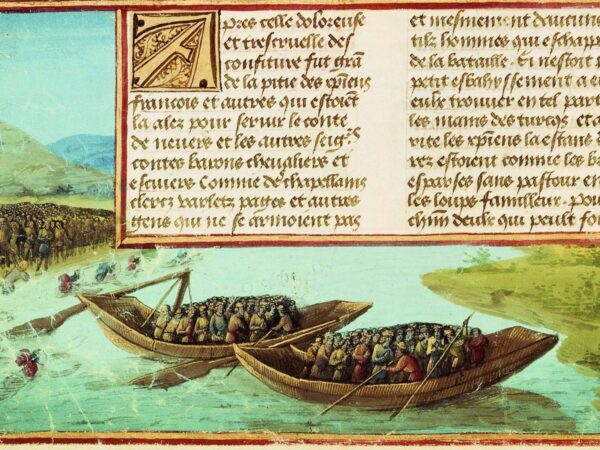 Apres celle doloreuse
et trescruelle des
confiture fut gran
de la pitie des xpiens
francois et autres qui estoiẽt
la alez pour seruir le conte
de neuers et les autres seigrs
contes barons cheualiers et
escuiers Comme de chapellains
clercz varletz pages et autres
gens qui ne se armoient pas
et mesmement daucuns
tilz hommes qui eschapp
de la bataille. Si nestoit p
petit esbahyssement a eu
eulx trouuer en tel part
les mains des turcqs et a
rite les xpiens la estans
rez estoient comme les
esparses sans pastour en
les loups familleux. pou
chun deulx qui peult fo